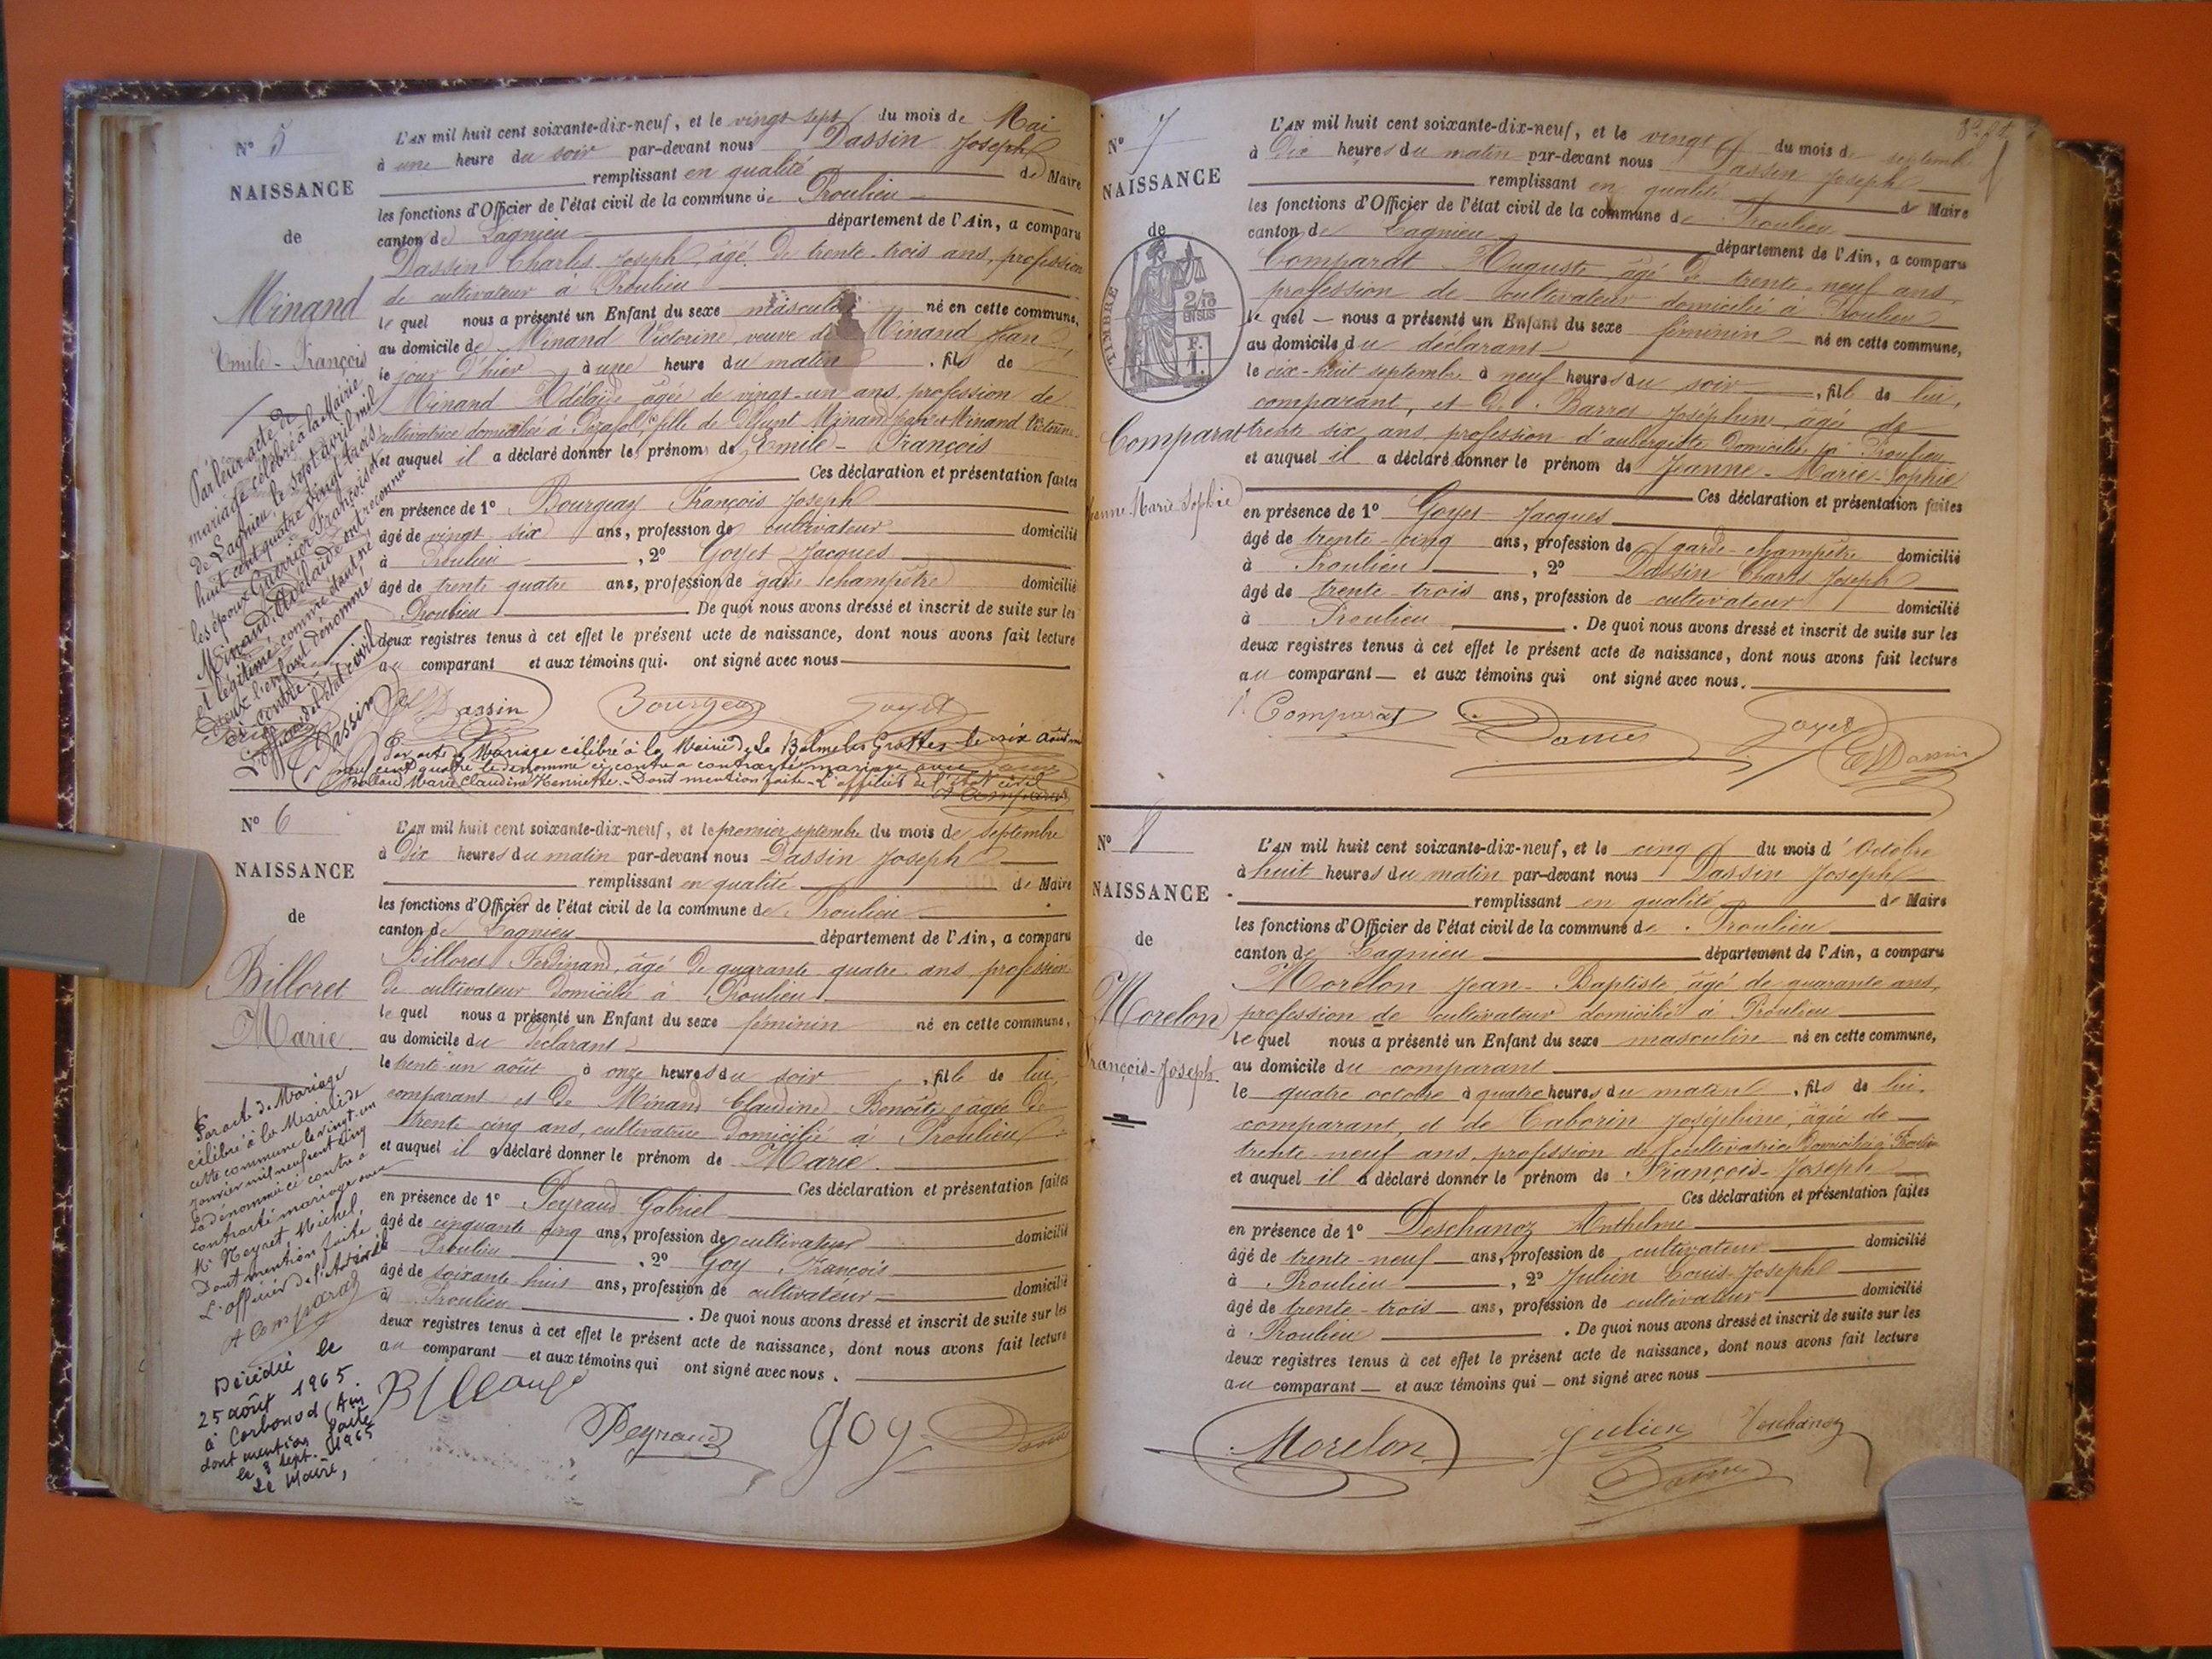 N° 5
NAISSANCE
de
Minand
Emile-François
Par leur acte de
mariage célébré à la Mairie
de Lagnieu, le sept avril mil
huit cent quatre vingt trois,
les époux Guerrier François et
Minand Adélaïde ont reconnu
et légitimé comme étant né
d'eux l'enfant dénommé
ci-contre.
L'officier de l'état civil
Dassin
L'AN mil huit cent soixante-dix-neuf, et le vingt-sept du mois de Mai
à une heure du soir par-devant nous Dassin Joseph
remplissant en qualité de Maire
les fonctions d'Officier de l'état civil de la commune de Proulieu
canton de Lagnieu département de l'Ain, a comparu
Dassin Charles Joseph, âgé de trente-trois ans, profession
de cultivateur à Proulieu
le quel nous a présenté un Enfant du sexe masculin né en cette commune,
au domicile de Minand Victorine, veuve de Minand Jean
le jour d'hier à une heure du matin, fils de
Minand Adélaïde âgée de vingt-un ans, profession de
cultivatrice domiciliée à fille de défunt Minand et Minand
et auquel il a déclaré donner les prénoms de Emile-François
Ces déclaration et présentation faites
en présence de 1° Bourgeay François Joseph
âgé de vingt-six ans, profession de cultivateur domicilié
à Proulieu, 2° Goyet Jacques
âgé de trente-quatre ans, profession de garde champêtre domicilié
Proulieu. De quoi nous avons dressé et inscrit de suite sur les
deux registres tenus à cet effet le présent acte de naissance, dont nous avons fait lecture
au comparant et aux témoins qui ont signé avec nous
Dassin Bourgeay Goyet
Par acte de Mariage célébré à la Mairie de La Balme les Grottes le six août mil
neuf cent quatre le dénommé ci-contre a contracté mariage avec
Marie Claudine Henriette. Dont mention faite. L'officier de l'état civil
A Comparat
N° 6
NAISSANCE
de
Billoret
Marie
Par acte de Mariage
célébré à la Mairie de
cette commune le vingt-un
janvier mil neuf cent cinq
la dénommée ci contre a
contracté mariage avec
Mr Neyret, Michel,
Dont mention faite
L'officier de l'état civil
A Comparat
Décédée le
25 août 1965
à Corbonod (Ain
dont mention faite
le 8 sept. 1965
Le Maire,
L'AN mil huit cent soixante-dix-neuf, et le premier septembre du mois de septembre
à dix heures du matin par-devant nous Dassin Joseph
remplissant en qualité de Maire
les fonctions d'Officier de l'état civil de la commune de Proulieu
canton de Lagnieu département de l'Ain, a comparu
Billoret Ferdinand, âgé de quarante quatre ans, profession
de cultivateur domicilié à Proulieu
le quel nous a présenté un Enfant du sexe féminin né en cette commune,
au domicile du déclarant
le trente-un août à onze heures du soir, fille de lui,
comparant et de Minand Claudine Benoîte, âgée de
trente cinq ans, cultivatrice domicilié à Proulieu
et auquel il a déclaré donner le prénom de Marie.
Ces déclaration et présentation faites
en présence de 1° Peyraud Gabriel
âgé de cinquante cinq ans, profession de cultivateur domicilié
Proulieu, 2° Goy François
âgé de soixante huit ans, profession de cultivateur domicilié
à Proulieu. De quoi nous avons dressé et inscrit de suite sur les
deux registres tenus à cet effet le présent acte de naissance, dont nous avons fait lecture
au comparant et aux témoins qui ont signé avec nous.
Peyraud goy
N° 7
NAISSANCE
de
TIMBRE
2/10
EN SUS
F.
1.
Comparat
Jeanne Marie Sophie
L'AN mil huit cent soixante-dix-neuf, et le vingt du mois de septembre
à dix heures du matin par-devant nous Dassin Joseph
remplissant en qualité de Maire
les fonctions d'Officier de l'état civil de la commune de Proulieu
canton de Lagnieu département de l'Ain, a comparu
Comparat Auguste âgé de trente-neuf ans,
profession de cultivateur domicilié à Proulieu
le quel nous a présenté un Enfant du sexe féminin né en cette commune,
au domicile du déclarant
le dix-huit septembre à neuf heures du soir, fille de lui,
comparant, et de Barret Joséphine, âgée de
trente-six ans profession d'aubergiste domiciliée à Proulieu
et auquel il a déclaré donner le prénom de Jeanne-Marie-Sophie
Ces déclaration et présentation faites
en présence de 1° Goyet Jacques
âgé de trente-cinq ans, profession de garde-champêtre domicilié
à Proulieu, 2° Dassin Charles Joseph
âgé de trente-trois ans, profession de cultivateur domicilié
à Proulieu. De quoi nous avons dressé et inscrit de suite sur les
deux registres tenus à cet effet le présent acte de naissance, dont nous avons fait lecture
au comparant et aux témoins qui ont signé avec nous.
Comparat Dassin Goyet
Dassin
N° 8
NAISSANCE
de
Morelon
François-Joseph
L'AN mil huit cent soixante-dix-neuf, et le cinq du mois d'Octobre
à huit heures du matin par-devant nous Dassin Joseph
remplissant en qualité de Maire
les fonctions d'Officier de l'état civil de la commune de Proulieu
canton de Lagnieu département de l'Ain, a comparu
Morelon Jean-Baptiste, âgé de quarante ans,
profession de cultivateur domicilié à Proulieu
le quel nous a présenté un Enfant du sexe masculin né en cette commune,
au domicile du comparant
le quatre octobre à quatre heures du matin, fils de lui,
comparant, et de Caborin Joséphine, âgée de
trente-neuf ans, profession de cultivatrice domiciliée à Proulieu
et auquel il a déclaré donner le prénom de François-Joseph
Ces déclaration et présentation faites
en présence de 1° Deschanoz Anthelme
âgé de trente-neuf ans, profession de cultivateur domicilié
à Proulieu, 2° Julien Louis-Joseph
âgé de trente-trois ans, profession de cultivateur domicilié
à Proulieu. De quoi nous avons dressé et inscrit de suite sur les
deux registres tenus à cet effet le présent acte de naissance, dont nous avons fait lecture
au comparant et aux témoins qui ont signé avec nous
Morelon Julien Deschanoz
Dassin